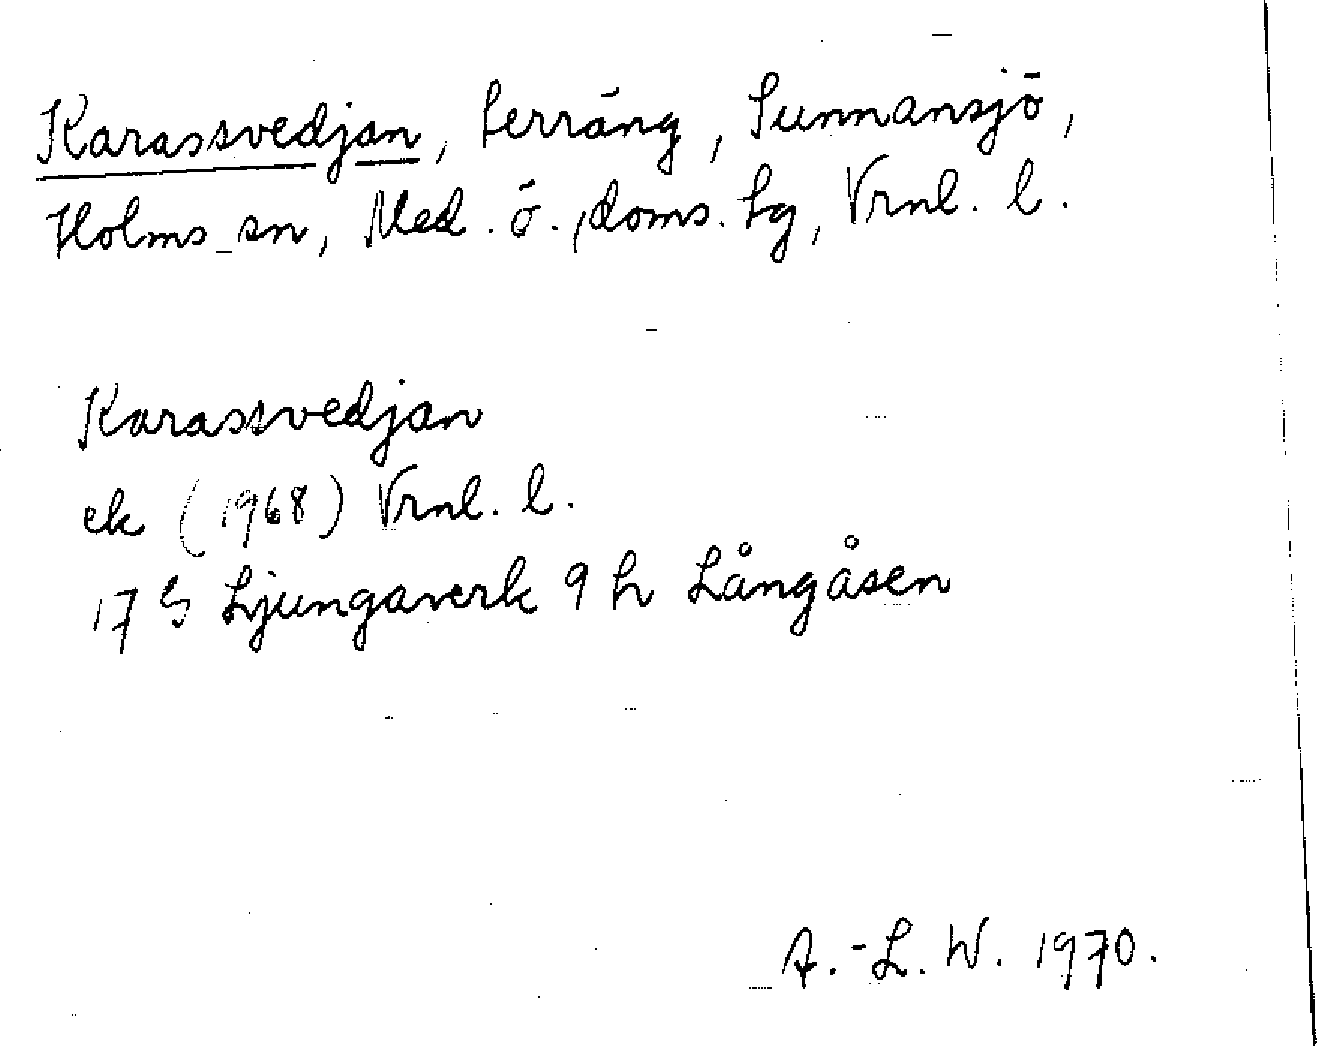 Karassvedjan, terräng, Sunnansjö,
Holms sn, Med. ö., doms. tg, Vrnl. l.
Karassvedjan
ek (1968) Vrnl. l.
17 G Ljungaverk 9 h Långåsen
A.-L. W. 1970.